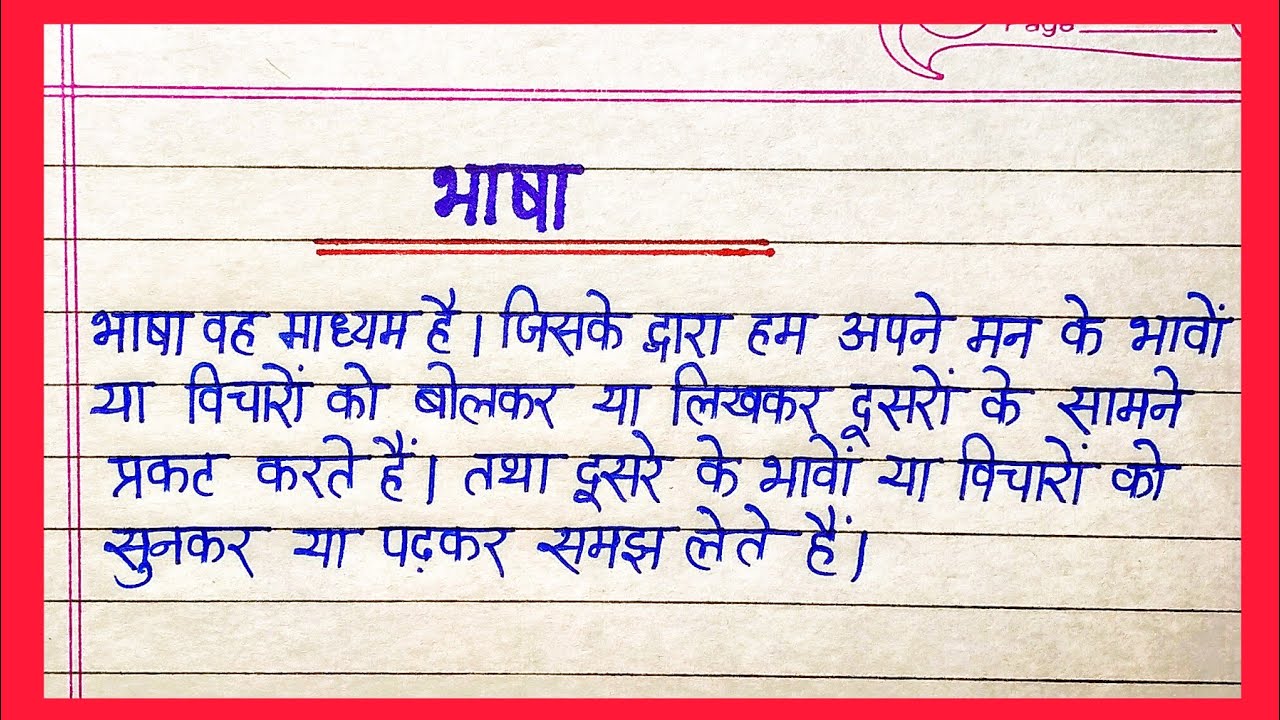 Page
भाषा
भाषा वह माध्यम है। जिसके द्वारा हम अपने मन के भावों
या विचारों को बोलकर या लिखकर दूसरों के सामने
प्रकट करते हैं। तथा दूसरे के भावों या विचारों को
सुनकर या पढ़कर समझ लेते हैं।